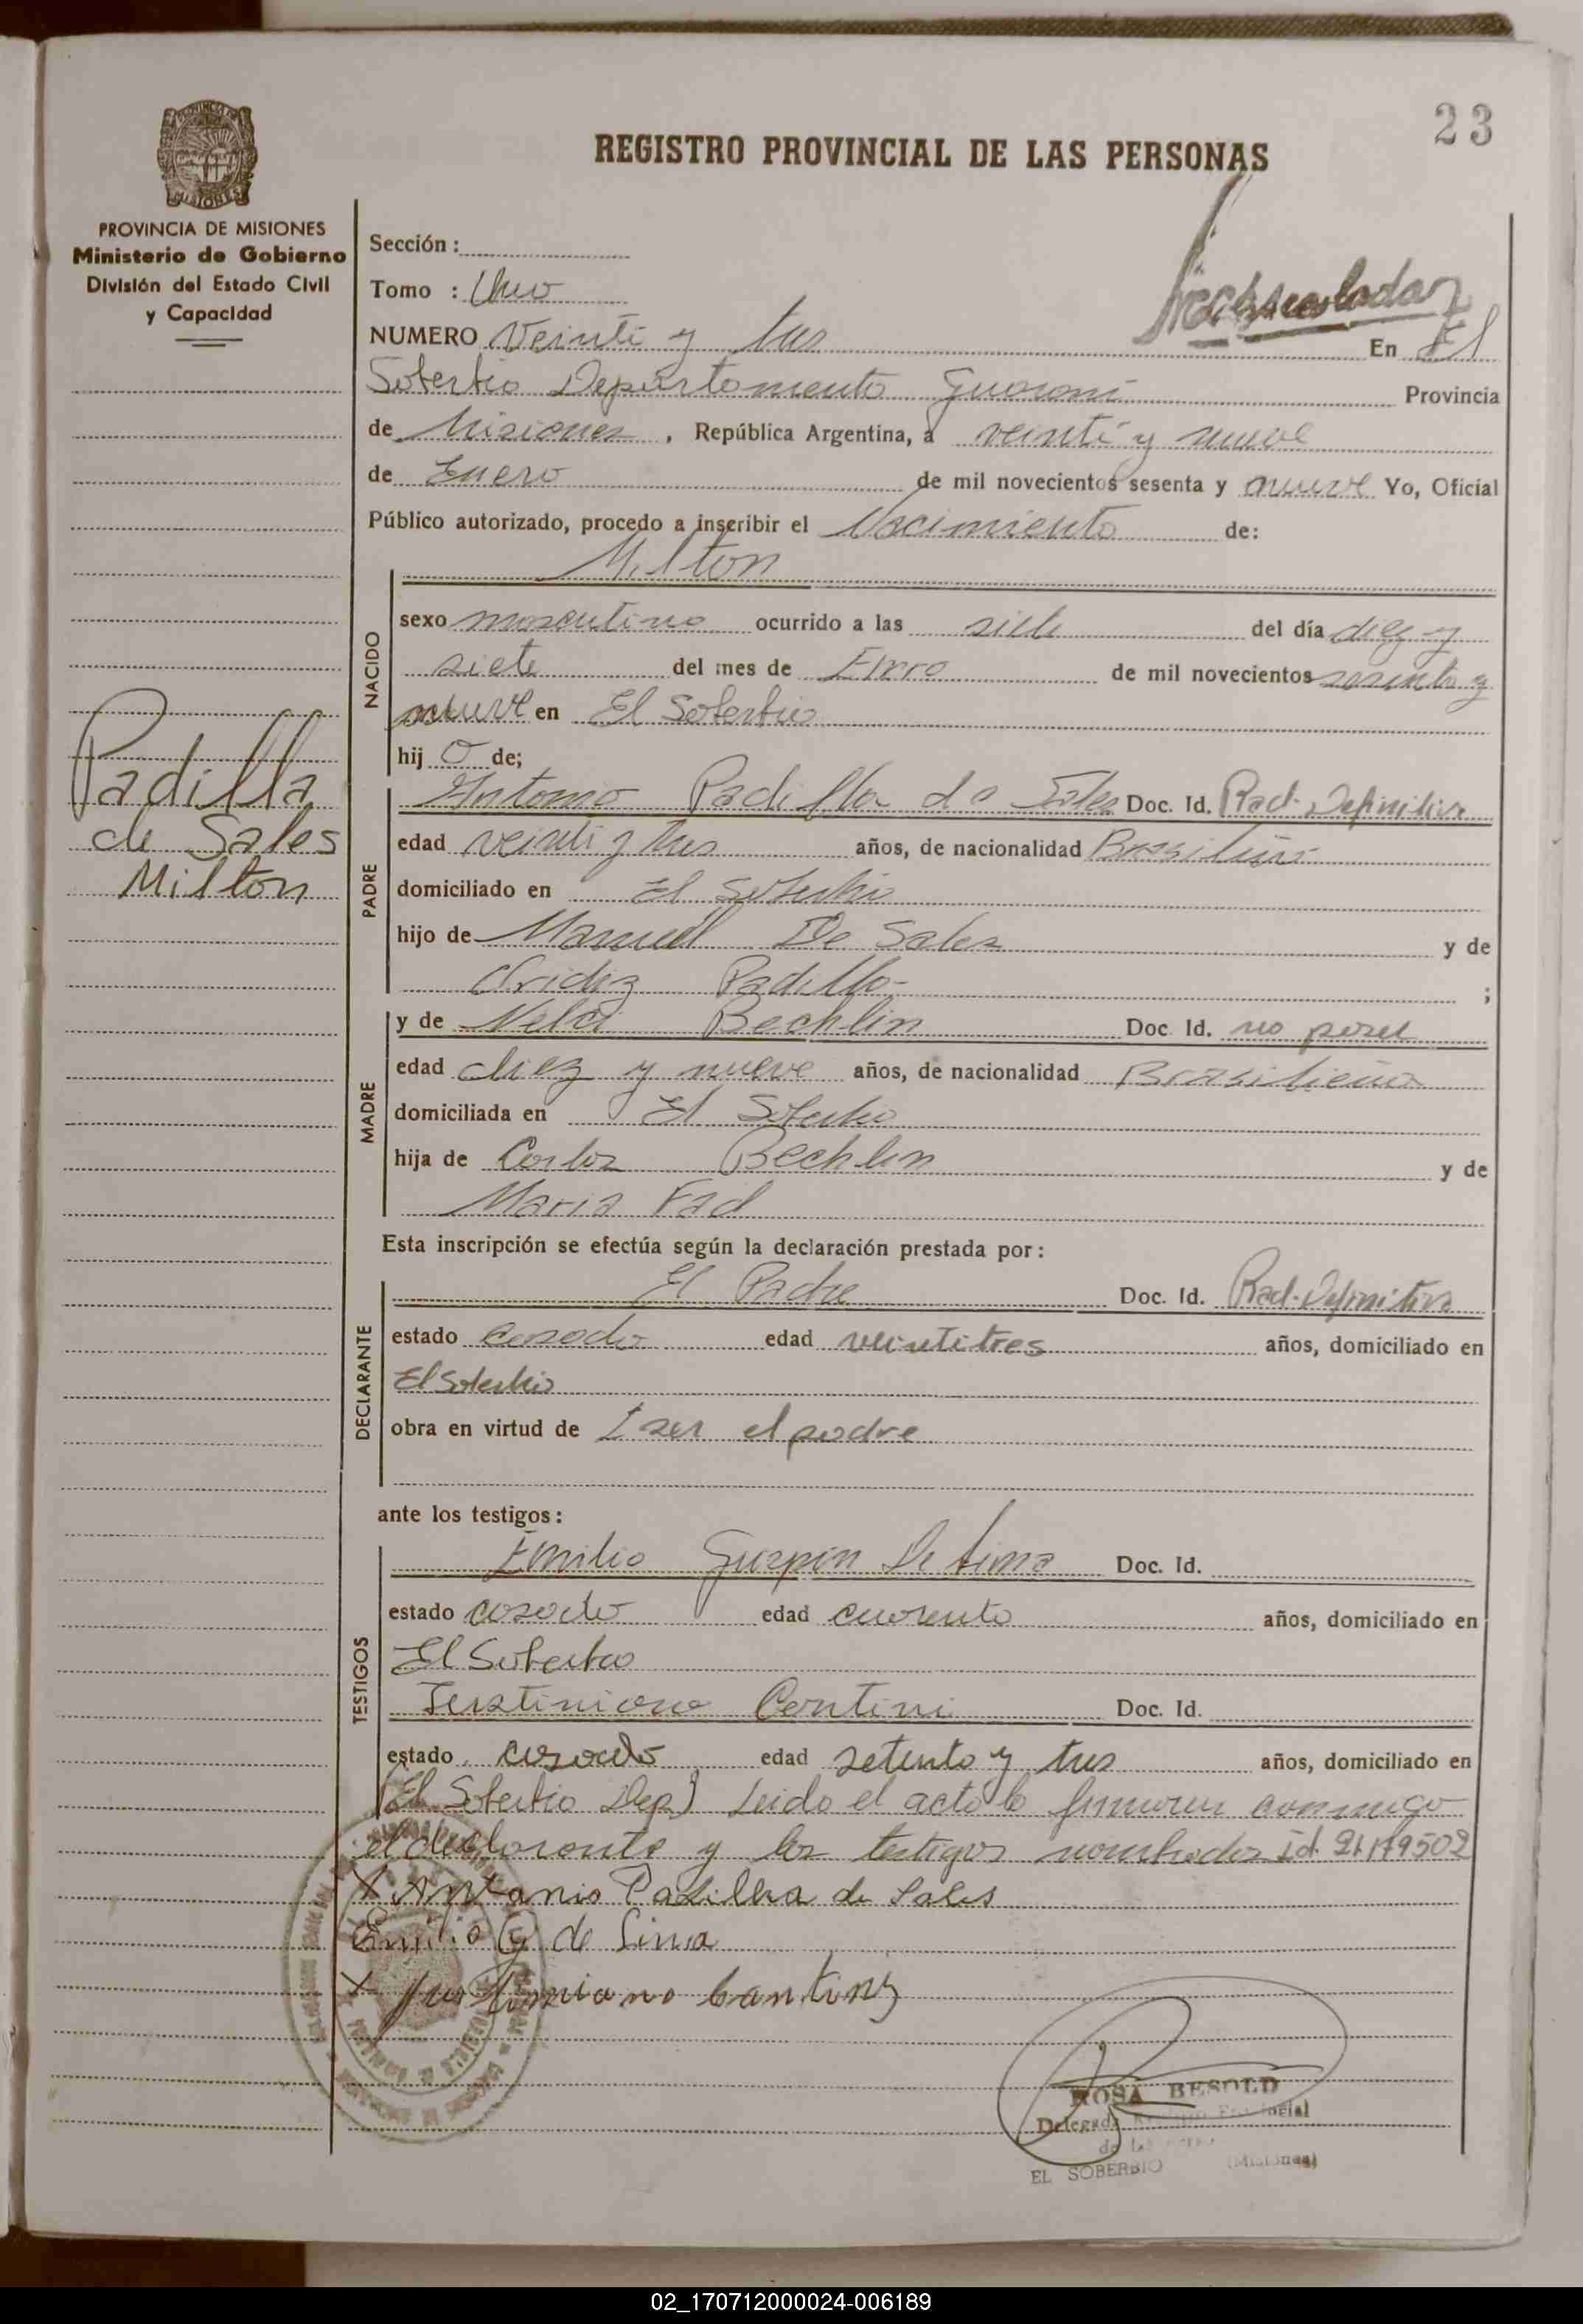 23
REGISTRO PROVINCIAL DE LAS PERSONAS
PROVINCIA DE MISIONES
Ministerio de Gobierno
División del Estado Civil
y Capacidad
Padilla
de Sales
Milton
Sección :
Tomo : Uno
NUMERO Veinti y tres En El
Soberbio Departamento Guarani Provincia
de Misiones , República Argentina, a veinti y nueve
de Enero de mil novecientos sesenta y nueve Yo, Oficial
Público autorizado, procedo a inscribir el Nacimiento de:
Milton
NACIDO
sexo masculino ocurrido a las siete del día diez y
siete del mes de Enero de mil novecientos sesenta y
nueve en El Soberbio
hij o de;
PADRE
Antonio Padilla de Sales Doc. Id. Rad. Definitiva
edad veinti y tres años, de nacionalidad Brasileño
domiciliado en El Soberbio
hijo de Manuel De Sales y de
Padilla ;
MADRE
y de Bechlin Doc. Id. no posee
edad diez y nueve años, de nacionalidad Brasileña
domiciliada en El Soberbio
hija de Carlos Bechlin y de
Maria
Esta inscripción se efectúa según la declaración prestada por :
DECLARANTE
El Padre Doc. Id. Rad. Definitiva
estado casado edad veintitres años, domiciliado en
El Soberbio
obra en virtud de ser el padre
ante los testigos :
TESTIGOS
Emilio De Lima Doc. Id.
estado casado edad cuarenta años, domiciliado en
El Soberbio
Doc. Id.
estado casado edad setenta y tres años, domiciliado en
El Soberbio Leido el acta lo firmaron conmigo
el declarante y los testigos nombrados
X Antonio Padilha de Sales
Emilio G de Lima
X Justiniano
ROSA BESOLD
Delegada
EL SOBERBIO (Misiones)
02_170712000024-006189